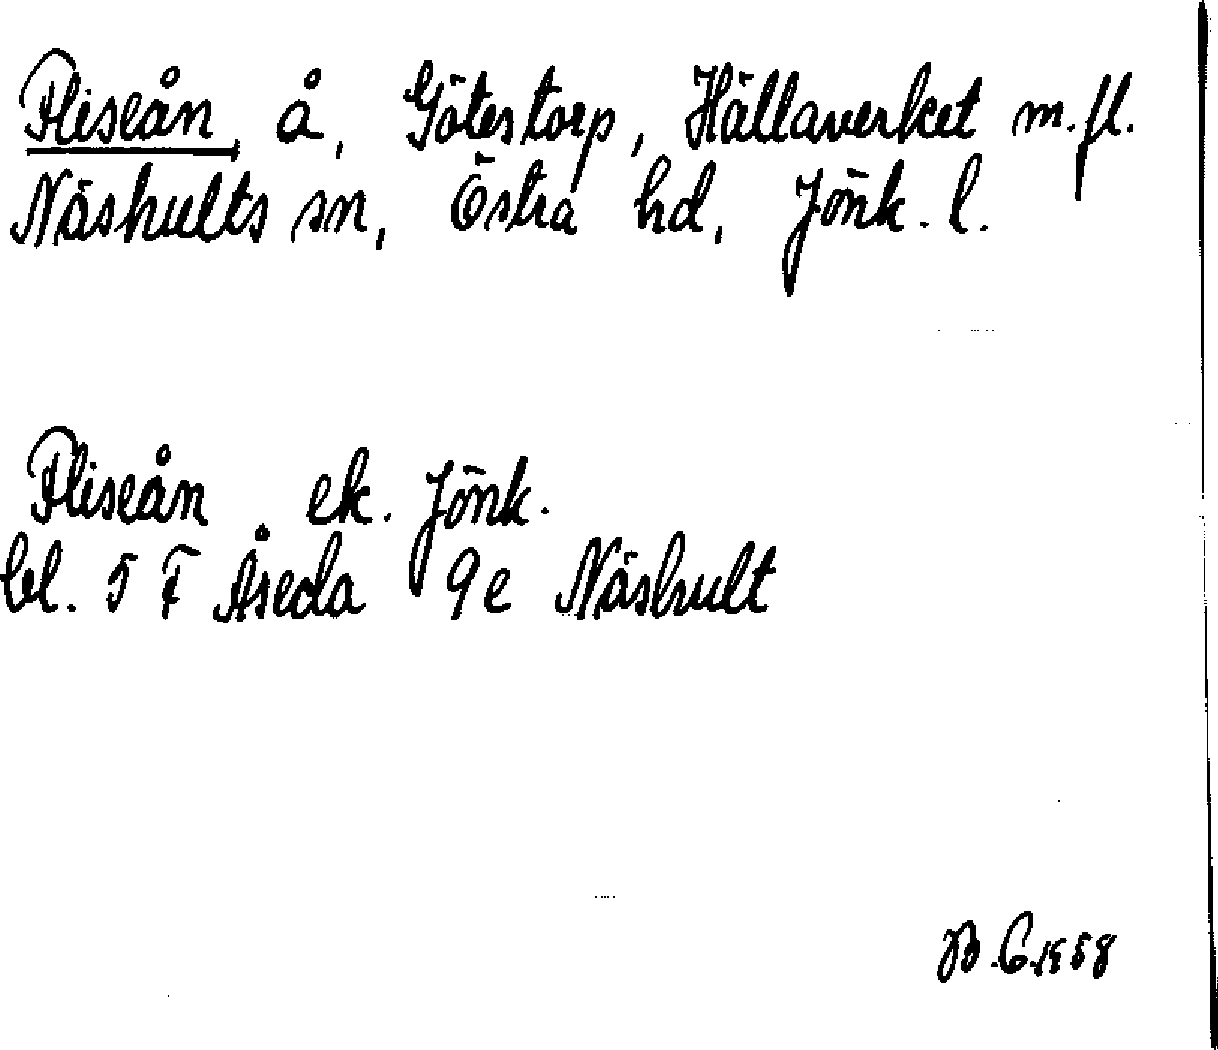 Fliseån, å, Götestorp, Hällaverket m.fl.
Näshults sn, Östra hd, Jönk. l.
Fliseån ek. Jönk.
bl. 5 F Åseda 9e Näshult
B.C. 1958